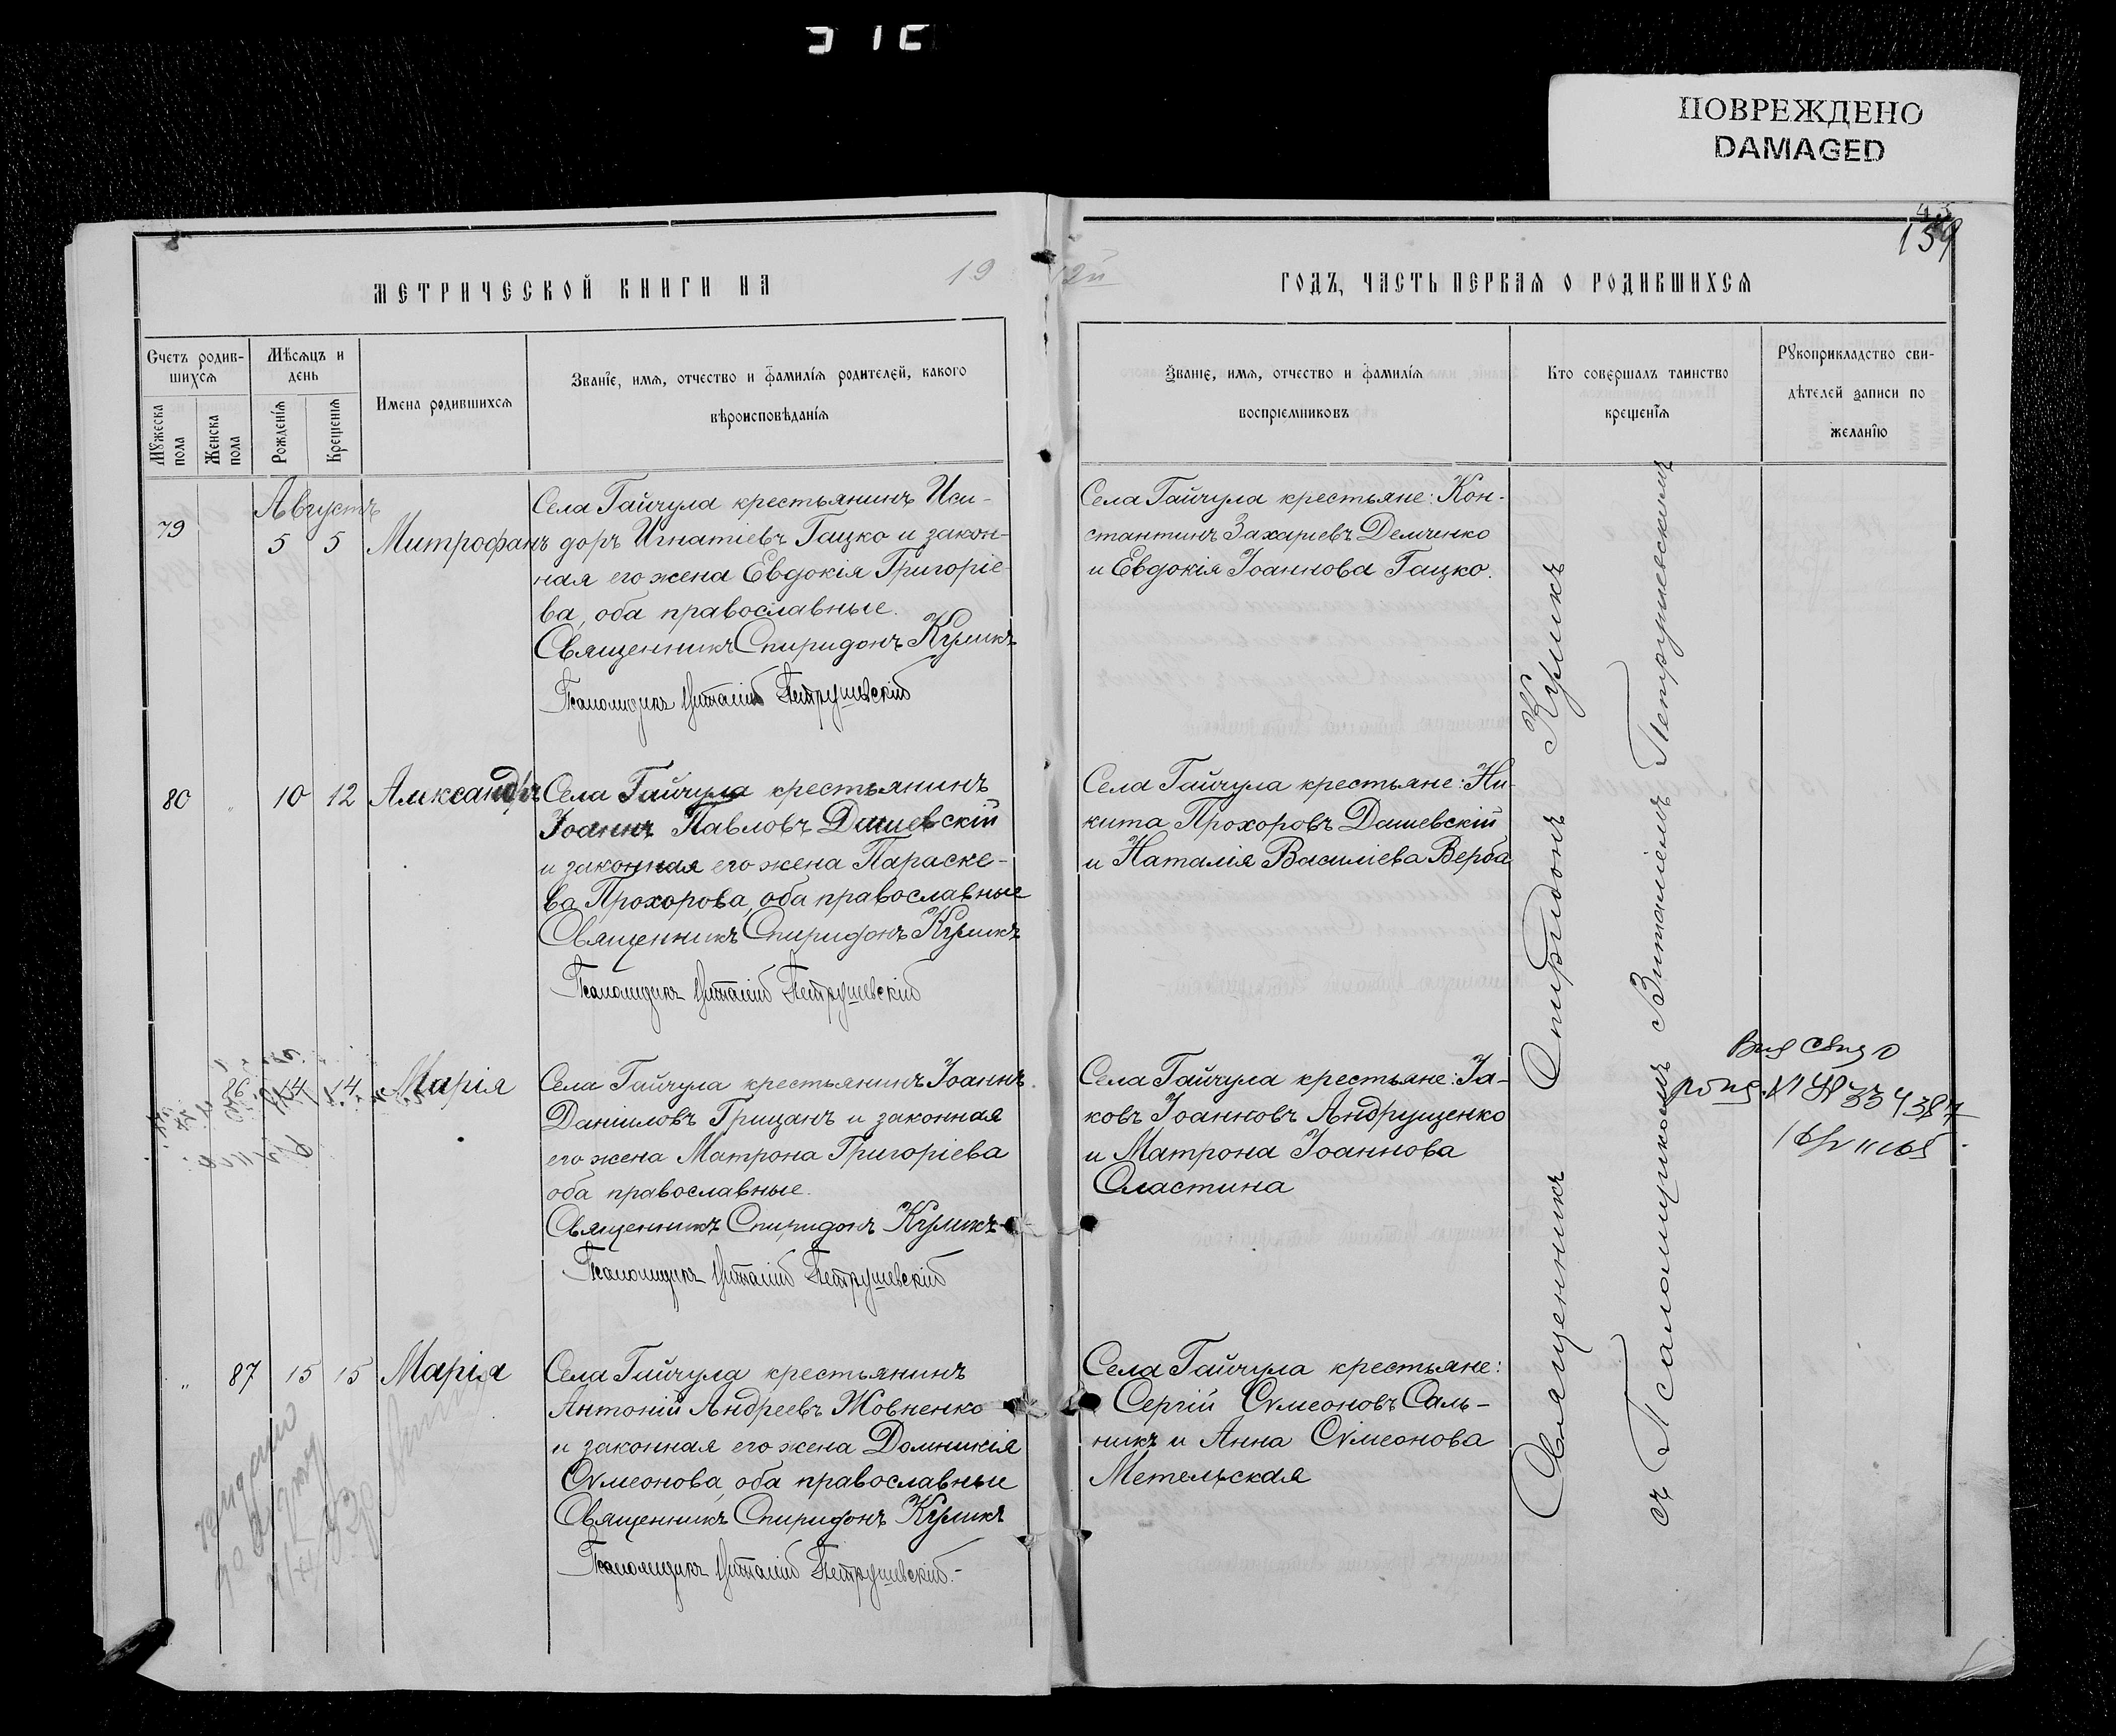 ПОВРЕЖДЕНО
DAMAGED
159
МЕТРИЧЕСКОЙ КНИГИ НА 19
12й ГОДЪ, ЧАСТЬ ПЕРВАЯ О РОДИВШИХСЯ
Счетъ родив-
шихся
Мужеска
пола
Женска
пола
Мѣсяцъ и
день
Рожденія
Крещенія
Имена родившихся
Званіе, имя, отчество и фамилія родителей, какого
вѣроисповѣданія
Званіе, имя, отчество и фамилія
воспріемниковъ
Кто совершалъ таинство
крещенія
Рукоприкладство сви-
дѣтелей записи по
желанію
Августъ
79 5 5 Митрофанъ
Села Гайчула крестьянинъ Иси-
доръ Игнатіевъ Гацко и закон-
ная его жена Евдокія Григоріе-
ва, оба православные.
Священникъ Спиридонъ Куликъ
Псаломщикъ Виталій Петрушевскій
Села Гайчула крестьяне: Кон-
стантинъ Захаріевъ Демченко
и Евдокія Іоаннова Гацко.
80 " 10 12 Александръ
Села Гайчула крестьянинъ
Іоаннъ Павловъ Дашевскій
и законная его жена Параске-
ва Прохорова, оба православные
Священникъ Спиридонъ Куликъ
Псаломщикъ Виталій Петрушевскій
Села Гайчула крестьяне: Ни-
кита Прохоровъ Дашевскій
и Наталія Василіева Верба
86 14 14 Марія
Села Гайчула крестьянинъ Іоаннъ
Даніиловъ Грицанъ и законная
его жена Матрона Григоріева
оба православные.
Священникъ Спиридонъ Куликъ
Псаломщикъ Виталій Петрушевскій
Села Гайчула крестьяне: Іа-
ковъ Іоанновъ Андрущенко
и Матрона Іоаннова
Сластина
" 87 15 15 Марія
Села Гайчула крестьянинъ
Антоній Андреевъ Жовненко
и законная его жена Домникія
Сѵмеонова, оба православные
Священникъ Спиридонъ Куликъ
Псаломщикъ Виталій Петрушевскій.
Села Гайчула крестьяне:
Сергій Сѵмеоновъ Саль-
никъ и Анна Сѵмеонова
Метельская
Священникъ Спиридонъ Куликъ
съ Псаломщикомъ Виталіемъ Петрушевскимъ